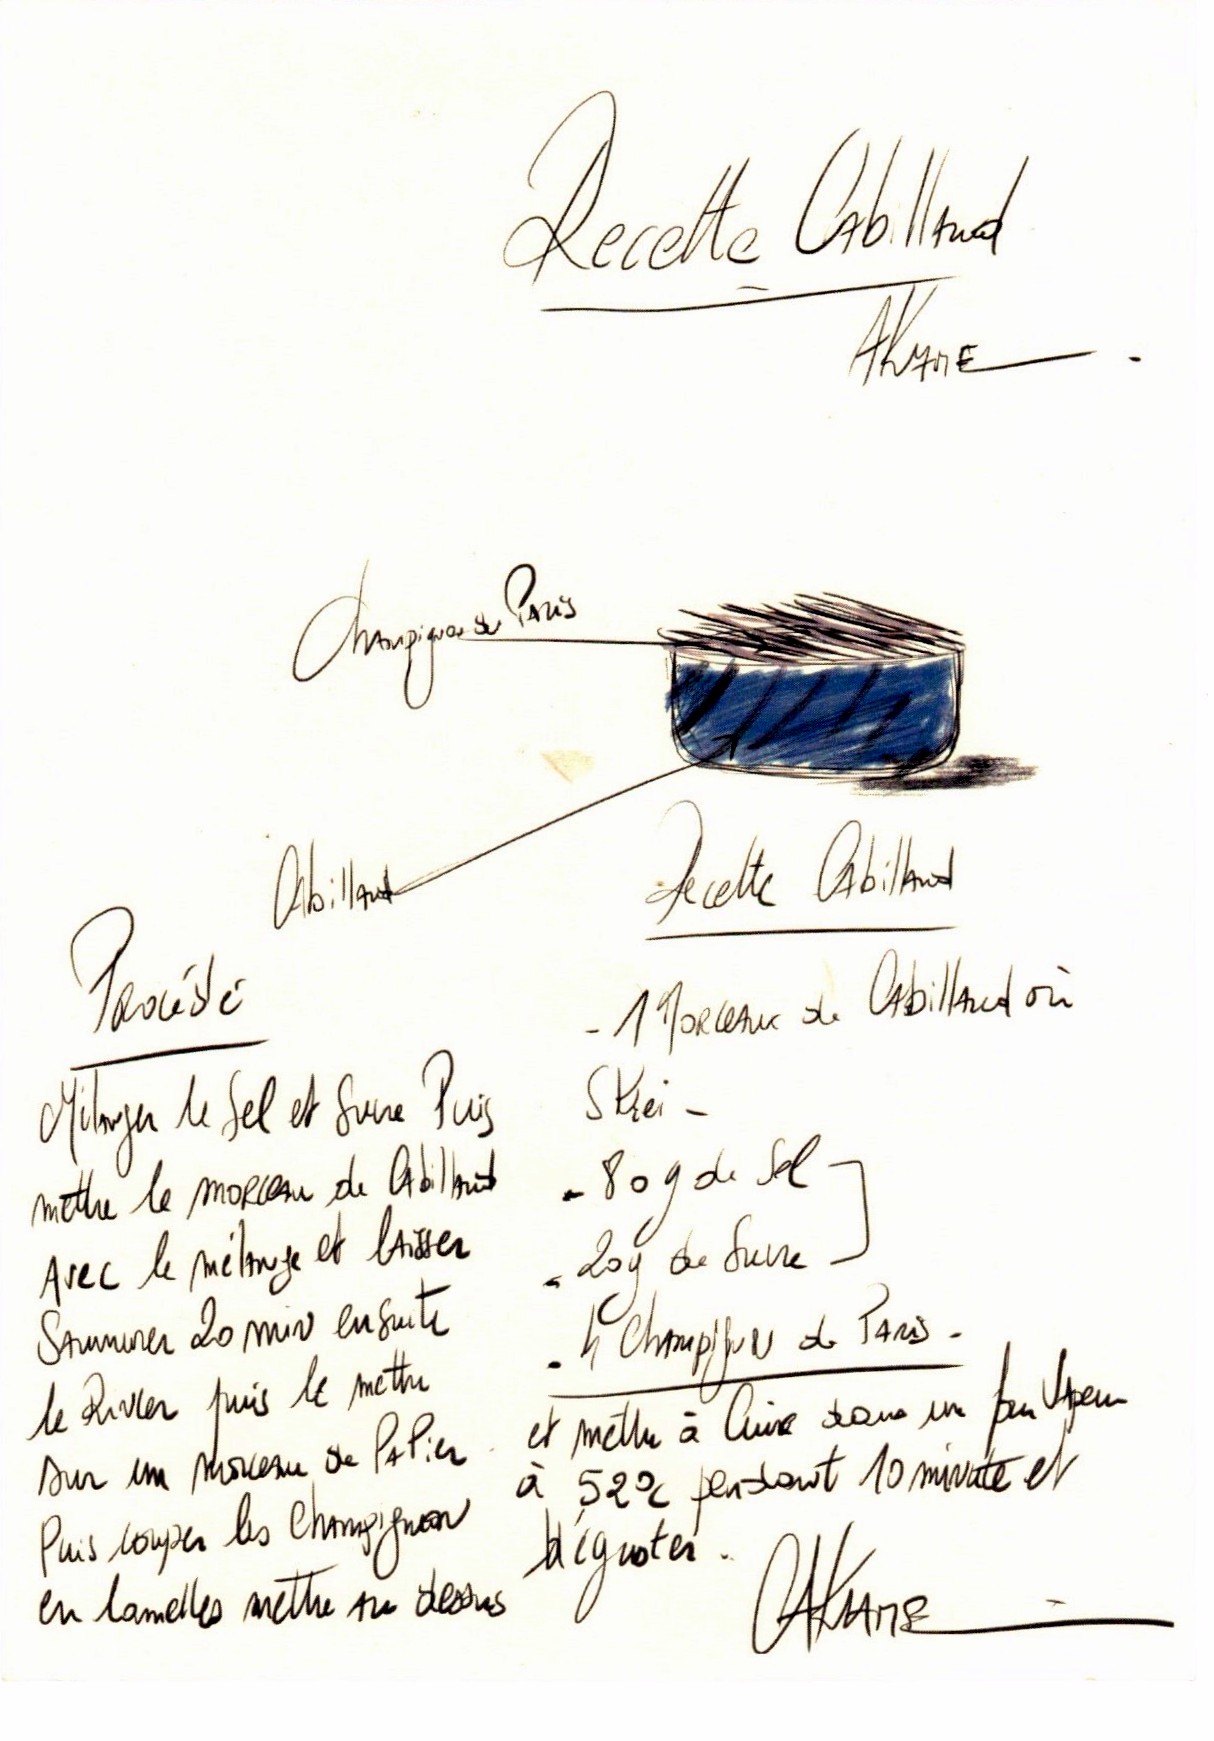 Recette Cabillaud
AKAME
Champignon de Paris
Cabillaud
Recette Cabillaud
- 1 Morceaux de Cabillaud où
Skrei -
- 80g de Sel
- 20g de Sucre
- 4 Champignon de Paris -
Procédé
Mélanger le Sel et Sucre Puis
mettre le morceau de Cabillaud
Avec le mélange et laisser
Saumurer 20 min ensuite
le Rincer puis le mettre
sur un morceau de Papier
Puis couper les Champignon
en lamelles mettre au dessus
et mettre à Cuire dans un four Vapeur
à 52°c pendant 10 minute et
déguster.
AKAME